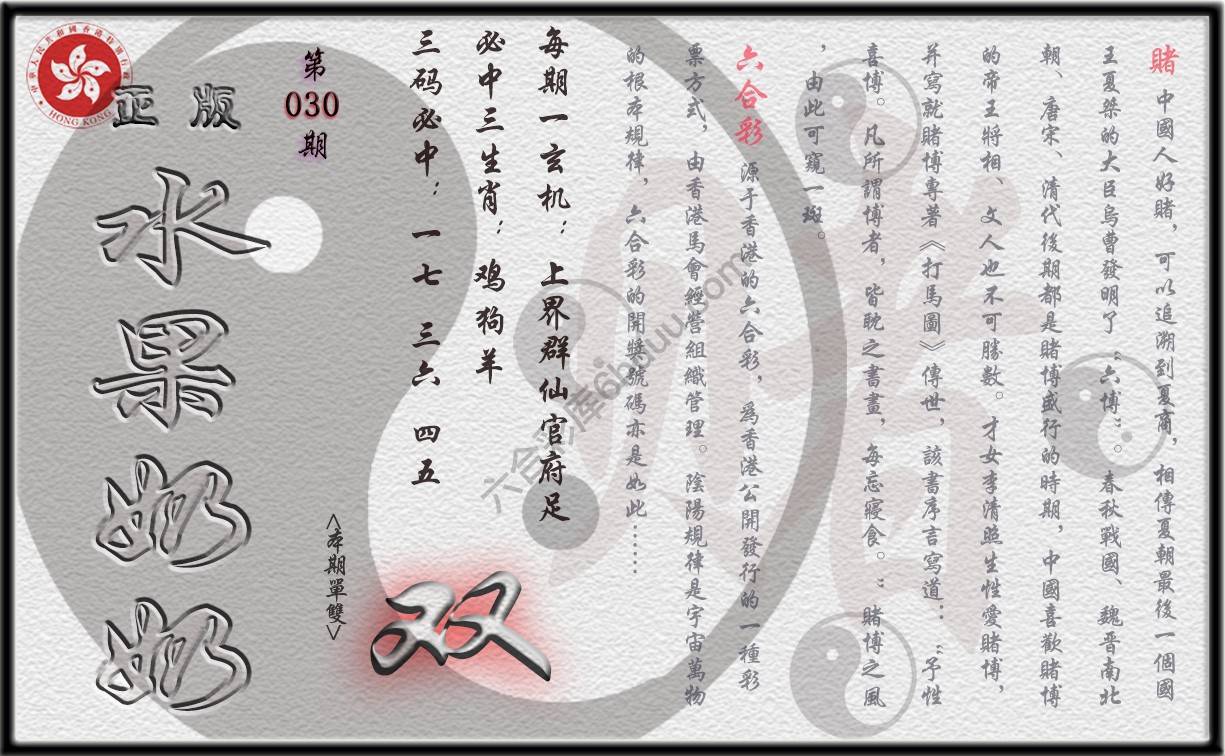 賭 中國人好賭，可以追溯到夏商，相傳夏朝最後一個國
王夏桀的大臣烏曹發明了“六博”。春秋戰國、魏晉南北
朝、唐宋、清代後期都是賭博盛行的時期，中國喜歡賭博
的帝王將相、文人也不可勝數。才女李清照生性愛賭博，
并寫就賭博專著《打馬圖》傳世，該書序言寫道：“予性
喜博。凡所謂博者，皆耽之書畫，每忘寢食。”賭博之風
，由此可窺一斑。
六合彩 源于香港的六合彩，爲香港公開發行的一種彩
票方式，由香港馬會經營組織管理。陰陽規律是宇宙萬物
的根本規律，六合彩的開獎號碼亦是如此……
每期一玄机：上界群仙官府足
必中三生肖：鸡狗羊
三码必中：一七 三六 四五
第
030
期
<本期單雙>
双
正版
水果奶奶
HONG KONG
六合彩库6huuu.com